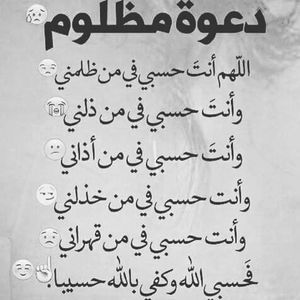 دعوة مظلوم😥
اللهم أنتَ حسبي في من ظلمني😒
وأنتَ حسبي في من ذلني😭
وأنتَ حسبي في من أذاني😕
وأنت حسبي في من خذلني😏
وأنت حسبي في من قهراني😟
فَحسبي الله وكفي بالله حسيبا.☝☺